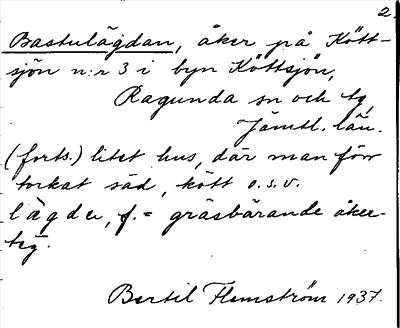 2.
Bastulägdan, åker på Kött-
sjön n:r 3 i byn Köttsjön,
Ragunda sn och tg,
Jämtl. län.
(forts.) litet hus, där man förr
torkat säd, kött o.s.v.
lägde, f. = gräsbärande åker-
teg.
Bertil Flemström 1937.